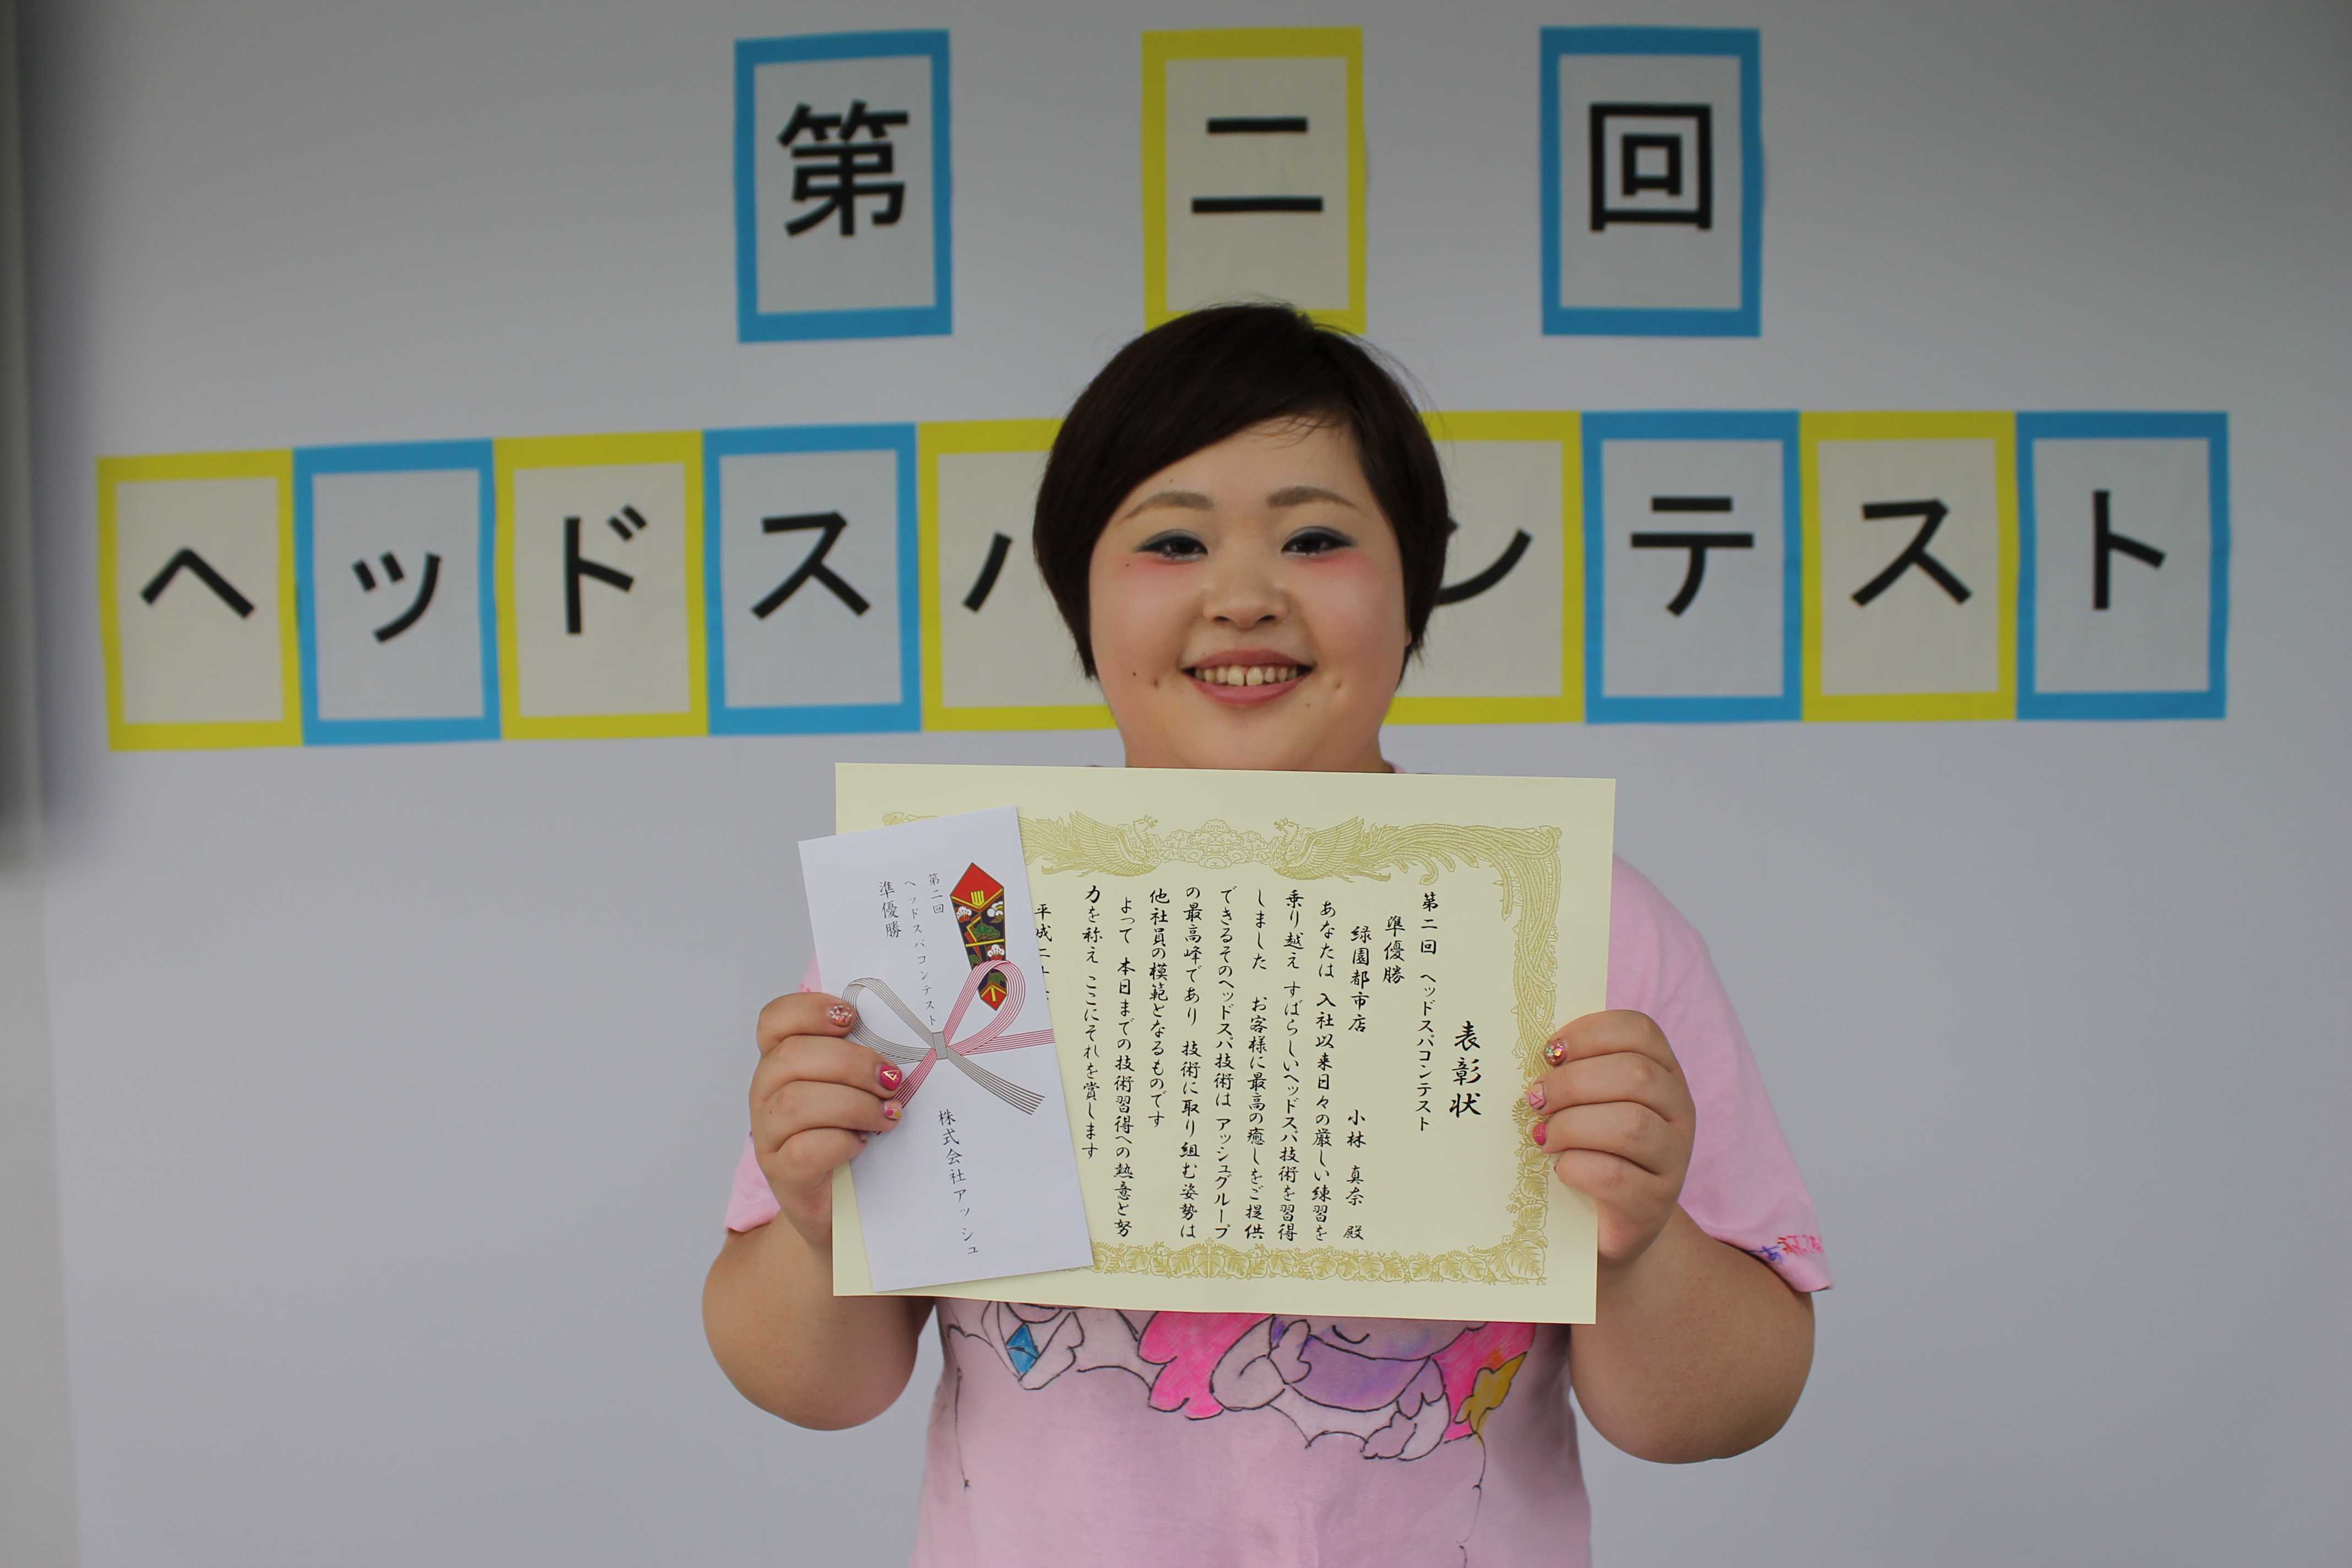 第二回
ヘッドスパンテスト
表彰状
第二回 ヘッドスパコンテスト
準優勝
緑園都市店 小林 真奈 殿
あなたは 入社以来日々の厳しい練習を
乗り越え すばらしいヘッドスパ技術を習得
しました お客様に最高の癒しをご提供
できるそのヘッドスパ技術は アッシュグループ
の最高峰であり 技術に取り組む姿勢は
他社員の模範となるものです
よって 本日までの技術習得への熱意と努
力を称え ここにそれを賞します
平成二十
第二回
ヘッドスパコンテスト
準優勝
株式会社アッシュ